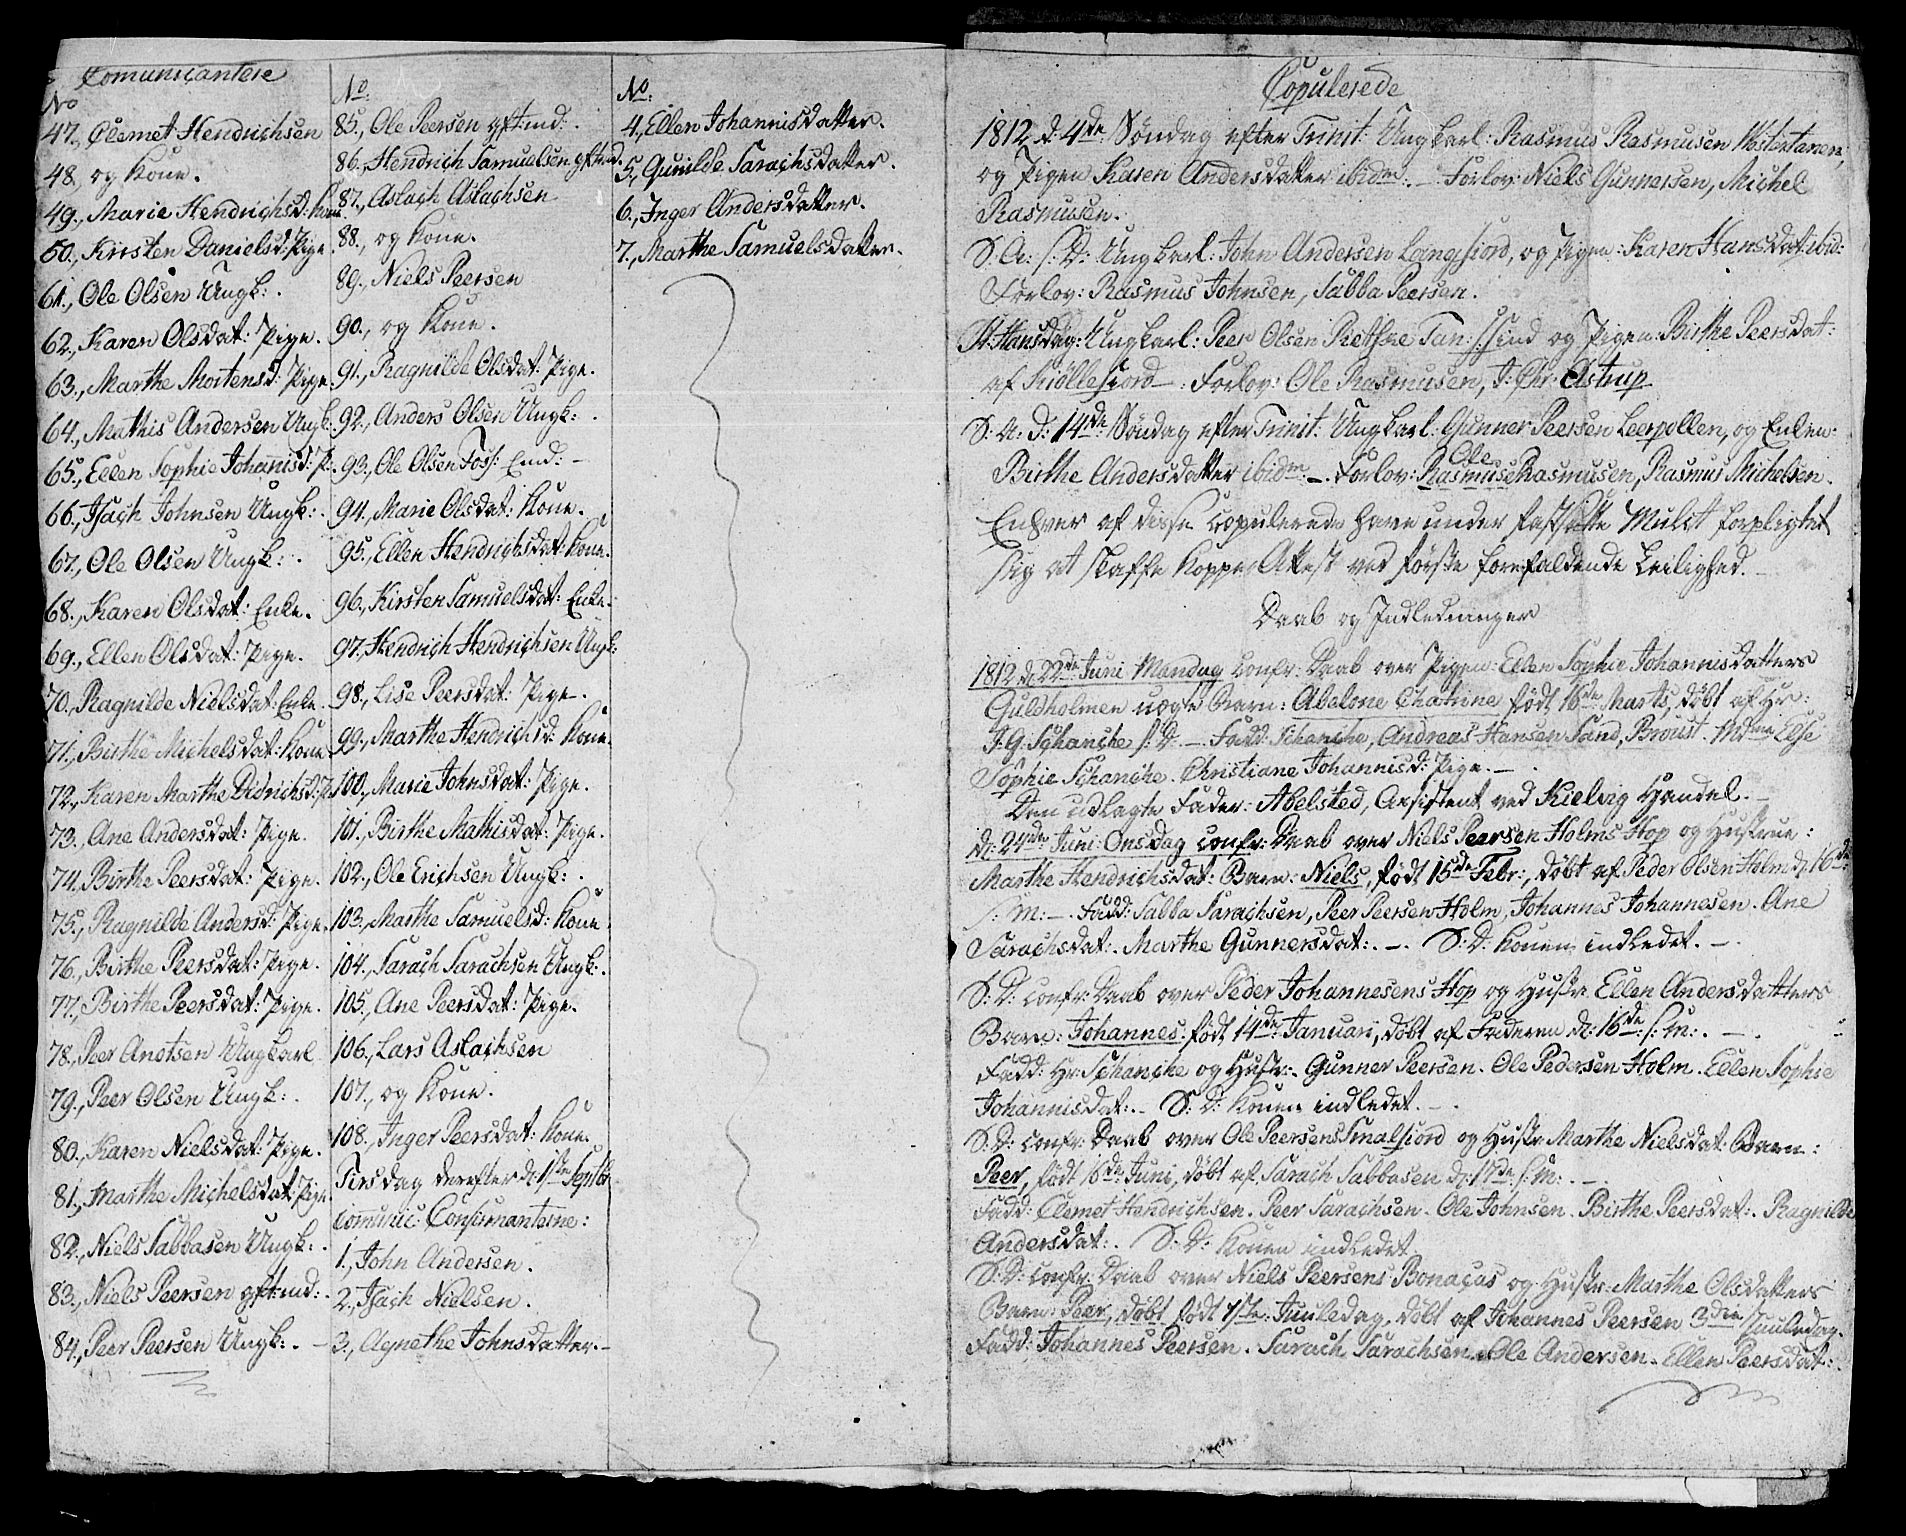 Comunicantere
No
47., Clemet Hendrichsen
48., og Kone.
49., Marie Hendrichsd: Kone
50., Kirsten Danielsd: Pige.
61., Ole Olsen Ungk: .
62., Karen Olsdat: Pige.
63., Marthe Mortensd: Pige.
64., Mathis Andersen Ungk:
65., Ellen Sophie Johannisd: P:
66., Isach Johnsen Ungk: .
67., Ole Olsen Ungk: .
68., Karen Olsdat: Enke.
69., Ellen Olsdat: Pige.
70., Ragnilde Nielsdat: Enke.
71., Birthe Michelsdat: Kone
72., Karen Marthe Didrichsd: P.
73., Ane Andersdat: Pige.
74., Birthe Peersdat: Pige.
75., Ragnilde Andersd: Pige.
76., Birthe Peersdat: Pige.
77., Birthe Peersdat: Pige.
78., Peer Anotsen Ungkarl
79., Peer Olsen Ungk: .
80., Karen Nielsdat: Pige.
81., Marthe Michelsdat: Pige
82., Niels Sabbasen Ungk: .
83., Niels Peersen gftmd: .
84., Peer Peersen Ungk: . –
No:
85., Ole Peersen gft:md: .
86., Hendrich Samuelsen gftmd.
87., Aslach Aslachsen
88., og Kone.
89., Niels Peersen
90., og Kone.
91., Ragnilde Olsdat: Pige.
92., Anders Olsen Ungk: .
93., Ole Olsen Foss: End: –
94., Marie Olsdat: Kone.
95., Ellen Hendrichsdat: Kone.
96., Kirsten Samuelsdat: Enke:
97., Hendrich Hendrichsen Ungk:
98., Lise Peersdat: Pige.
99., Marthe Hendrichsd: Kone.
100., Marie Johnsdat: Pige.
101., Birthe Mathisdat: Pige.
102., Ole Erichsen Ungk: .
103., Marthe Samuelsd: Kone.
104., Sarach Sarachsen Ungk: .
105., Ane Peersdat: Pige.
106., Lars Aslachsen
107., og Kone.
108., Inger Peersdat: Kone.
Tirsdag derefter d: 1ste Septbr
Comunic: Confirmanterne:
1., John Andersen.
2., Isach Nielsen.
3., Agnethe Johnsdatter. –
No:
4., Ellen Johannisdatter.
5., Gunilde Sarachsdatter.
6., Inger Andersdatter.
7., Marthe Samuelsdatter.
Copulerede
1812 d: 4de Søndag efter Trinit: Ungkarl: Rasmus Rasmusen Westertanen,
og Pigen Karen Andersdatter ibidm: – Forlov: Niels Gunnersen, Michel
Rasmusen.
S: A: s: D: Ungkarl: John Andersen Langfiord, og Pigen: Karen Hansdat: ibid:
Forlov: Rasmus Johnsen, Sabba Peersen.
St: Hansdag: Ungkarl: Peer Olsen Tan: find og Pigen: Birthe Peersdat:
af Kiöllefiord – : Forlov: Ole Rasmusen, J: Chr: Astrup
S: A: d: 14de Søndag efter Trinit: Ungkarl: Gunner Peersen Leerpollen, og Enken:
Birthe Andersdatter ibidm: – . Forlov: Rasmuse Ole Rasmusen, Rasmus Michelsen.
Enhver af disse Copulerede have under fastsatte Mulct forpligtet
sig at skaffe Koppe Attest ved første forefaldende Leilighed. –
Daab og Indledninger
1812 d: 22de Juni Mandag Confr: Daab over Pigen: Ellen Sophie Johannisdatters
Guldholmen uægte Barn: Abelone Chatrine født 16de Marts, döbt af Hr:
J. G. Schanche s: D: – Fadd: Schanche, Andreas Hansen Sand, Broust. Mdme Else
Sophie Schanche. Christiane Johannisd: Pige. –
Den udlagte Fader: Abelsted, Assistent ved Kielvig Handel. –
d: 24de Juni Onsdag Confr: Daab over Niels Peersen Holms Hop og Hustrue:
Marthe Hendrichsdat: Barn: Niels, født 15de Febr:, döbt af Peder Olsen Holm d: 16de
s: M: – . Fadd: Sabba Sarachsen, Peer Peersen Holm, Johannes Johannesen. Ane
Sarachsdat: . Marthe Gunnersdat: . – . S: D: Konen indledet. – .
S: D: Confr: Daab over Peder Johannesens Hop og Hustr: Ellen Andersdatters
Barn: Johannes: født 14de Januari, döbt af Faderen d: 16de s: M: . –
Fadd: Hr: Schanche og Hustr: . Gunner Peersen. Ole Pedersen Holm. Ellen Sophie
Johannisdat: . – S: D: Konen indledet. – .
S: D: Confr: Daab over Ole Peersens Smalfiord og Hustr: Marthe Nielsdat: Barn:
Peer, født 16de Juni, döbt af Sarach Sabbasen d: 17de s: M: . – .
Fadd: Clemet Hendrichsen. Peer Sarachsen. Ole Johnsen. Birthe Peersdat: . Ragnilde
Andersdat: . S: D: Konen indledet.
S: D: Confr: Daab over Niels Peersens Bonacas og Hustr: Marthe Olsdatters
Barn: Peer, döbt født 1ste Juuledag, döbt af Johannes Peersen 3die Juuledag.
Fadd: Johannes Peersen. Sarach Sarachsen. Ole Andersen. Ellen Peersdat: .